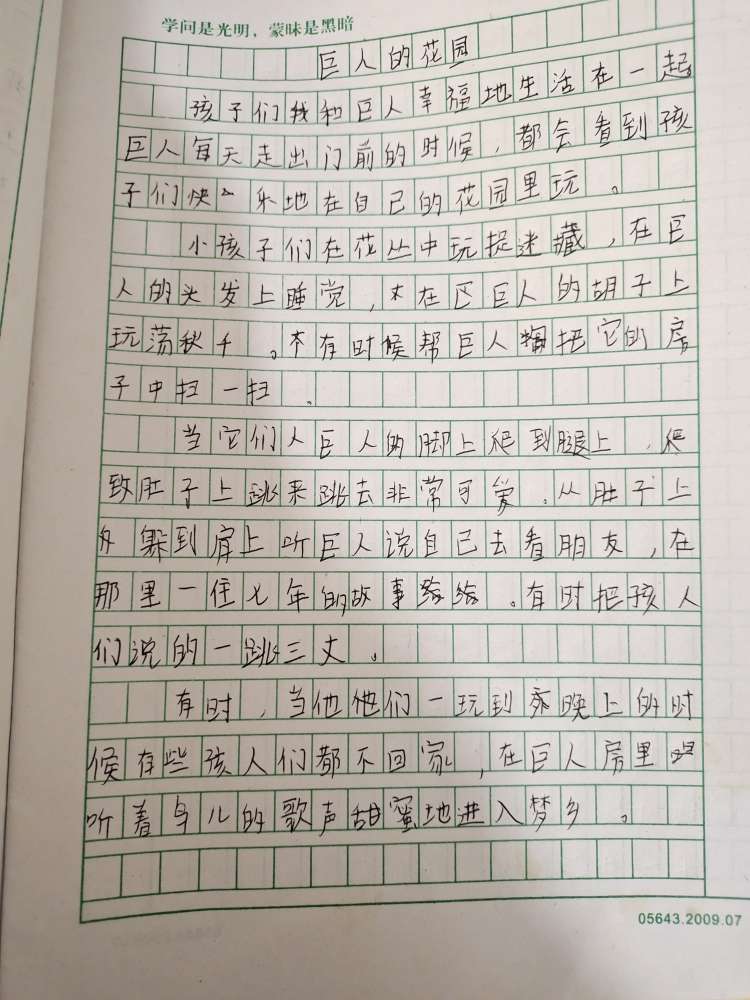 学问是光明，蒙昧是黑暗
巨人的花园
孩子们我和巨人幸福地生活在一起
巨人每天走出门前的时候，都会看到孩
子们快乐地在自己的花园里玩。
小孩子们在花丛中玩捉迷藏，在巨
人的头发上睡觉，在巨人的胡子上
玩荡秋千。有时候帮巨人把它的房
子中扫一扫．
当它们人巨人的脚上爬到腿上，爬
致肚子上跳来跳去非常可爱．从肚子上
躲到肩上听巨人说自己去看朋友，在
那里一住七年的故事。有时把孩人
们说的一跳三丈。
有时，当他他们一玩到晚上的时
候有些孩人们都不回家，在巨人房里
听着鸟儿的歌声甜蜜地进入梦乡。
05643.2009.07